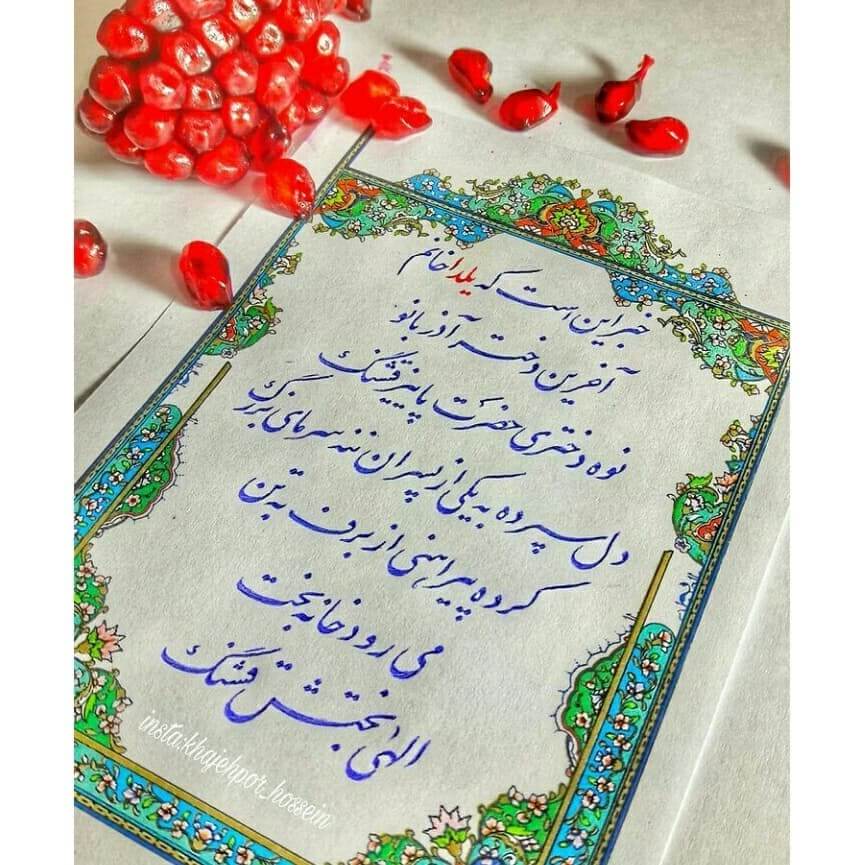 خبر این است که یلدا خانم
آخرین دختر آذر بانو
نوه دختری حضرت پاییز قشنگ
دل سپرده به یکی از پسران ننه سرمای بزرگ
کرده پیراهنی از برف به تن
می رود خانه بخت
الهی بختش قشنگ
insta:khajehpor_hossein